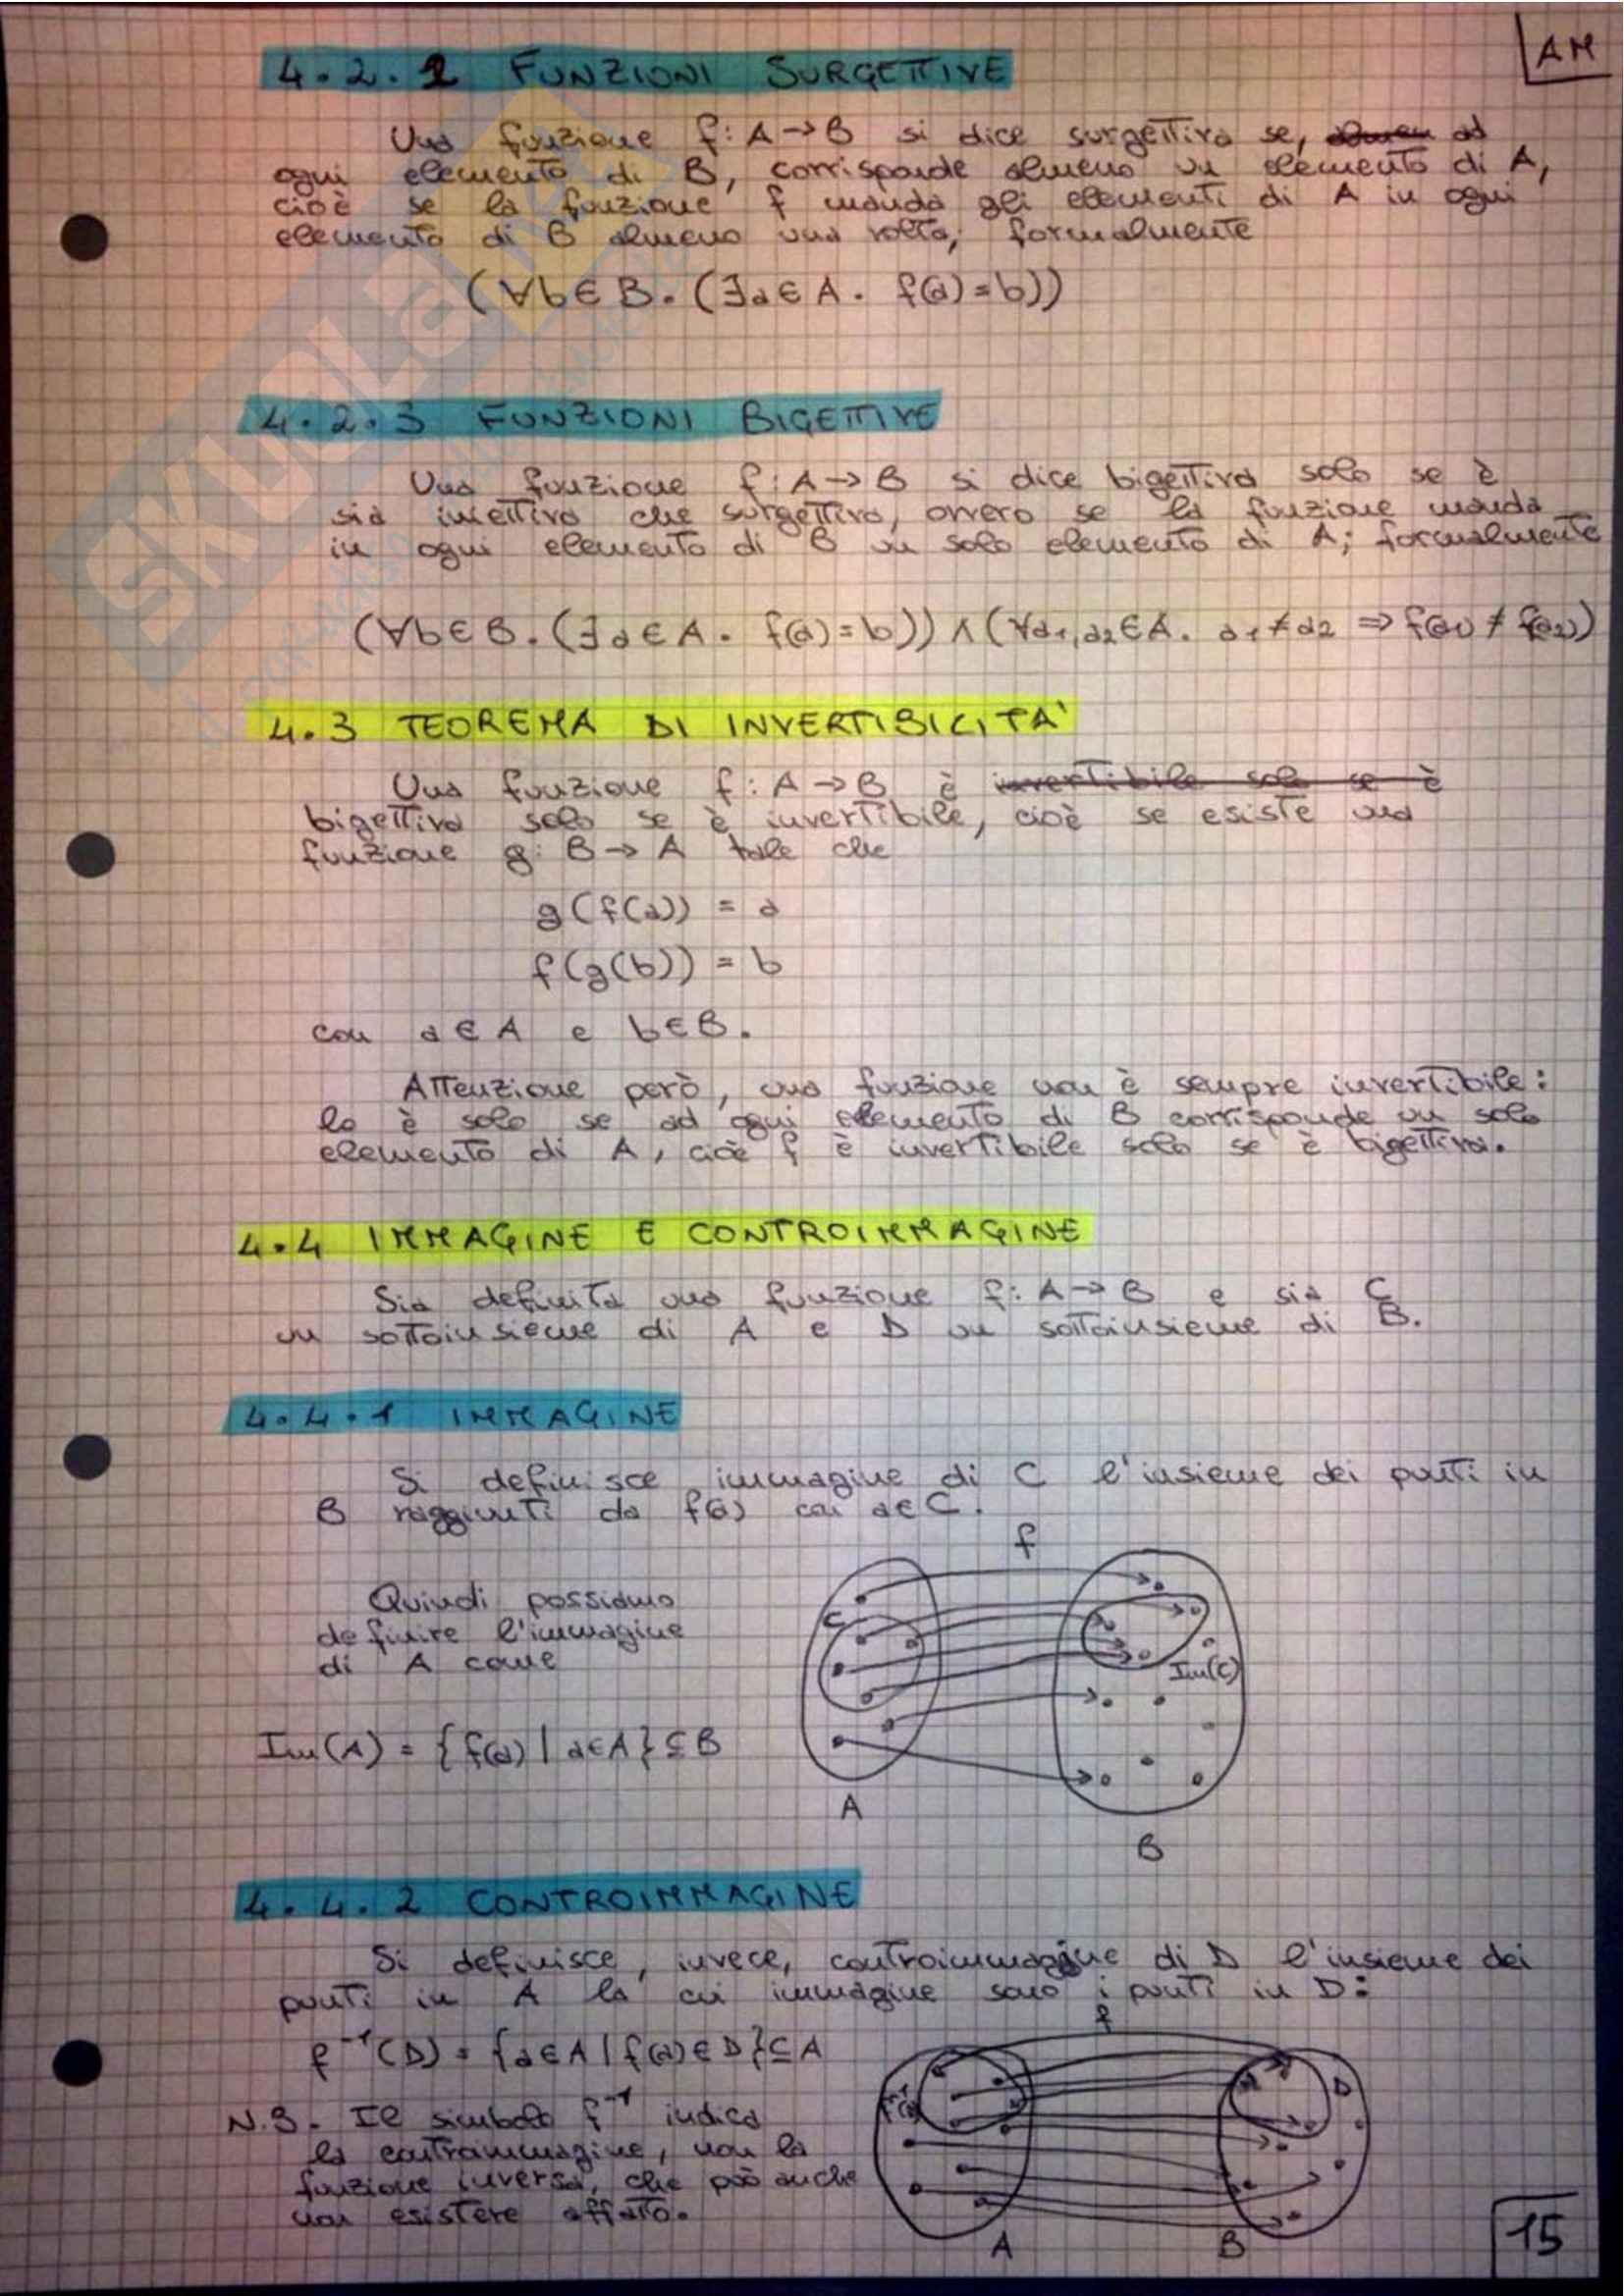 AM
4.2.2 FUNZIONI SURGETTIVE
Una funzione f: A → B si dice surgettiva se, ad
ogni elemento di B, corrisponde almeno un elemento di A,
cioè se la funzione f manda gli elementi di A in ogni
elemento di B almeno una volta; formalmente
(∀b∈B.(∃a∈A. f(a)=b))
4.2.3 FUNZIONI BIGETTIVE
Una funzione f: A → B si dice bigettiva solo se è
sia iniettiva che surgettiva, ovvero se la funzione manda
in ogni elemento di B un solo elemento di A; formalmente
(∀b∈B.(∃a∈A. f(a)=b)) ∧ (∀a1,a2∈A. a1≠a2 ⇒ f(a1)≠f(a2))
4.3 TEOREMA DI INVERTIBILITA'
Una funzione f: A → B è invertibile solo se è
bigettiva solo se è invertibile, cioè se esiste una
funzione g: B → A tale che
g(f(a)) = a
f(g(b)) = b
con a∈A e b∈B.
Attenzione però, una funzione non è sempre invertibile:
lo è solo se ad ogni elemento di B corrisponde un solo
elemento di A, cioè f è invertibile solo se è bigettiva.
4.4 IMMAGINE E CONTROIMMAGINE
Sia definita una funzione f: A → B e sia C
un sottoinsieme di A e D un sottoinsieme di B.
4.4.1 IMMAGINE
Si definisce immagine di C l'insieme dei punti in
B raggiunti da f(a) con a∈C.
f
Quindi possiamo
definire l'immagine
di A come
C
Im(C)
Im(A) = {f(a) | a∈A} ⊆ B
A
B
4.4.2 CONTROIMMAGINE
Si definisce, invece, controimmagine di D l'insieme dei
punti in A la cui immagine sono i punti in D:
f
f⁻¹(D) = {a∈A | f(a)∈D} ⊆ A
f⁻¹(D)
D
N.B. Il simbolo f⁻¹ indica
la controimmagine, non la
funzione inversa, che può anche
non esistere affatto.
A
B
15